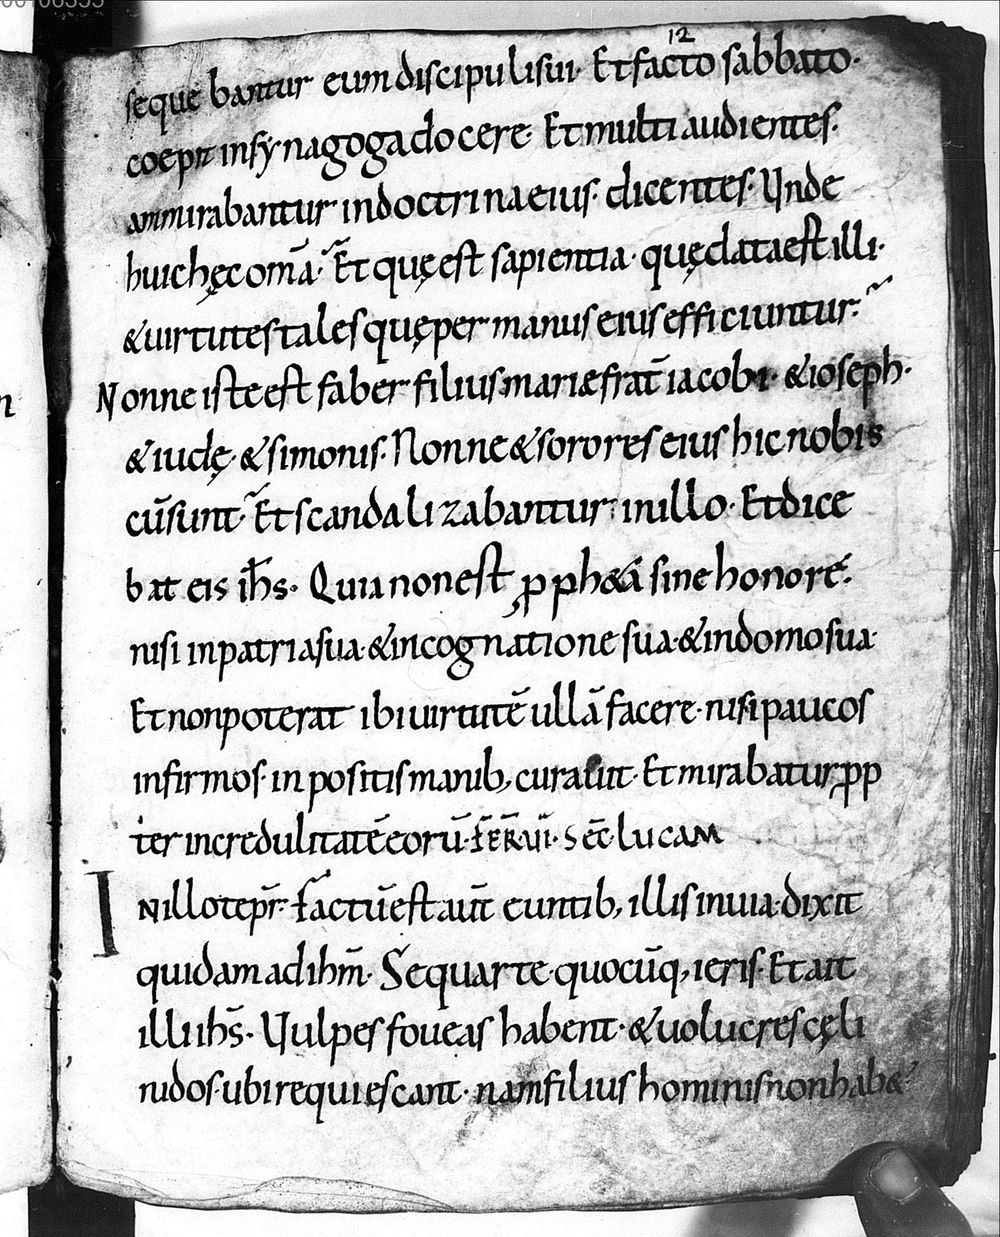 12
seque bantur eum discipuli sui· Et facto sabbato·
coepit insynagoga docere· Et multi audientes·
ammirabantur indoctrina eius· dicentes· Unde
huic hęc om̄a· Et quę est sapientia· quę data est illi·
&uirtutes tales quę per manus eius efficiuntur·
Nonne iste est faber filius mariæ frat̄ iacobi· &ioseph·
&iudę· &simonis· Nonne &sorores eius hic nobis
cū sunt· Et scandalizabantur inillo· Et dice
bat eis ih̄s· Quia non est ꝓph&ā sine honore·
nisi inpatria sua· &incognatione sua· &indomo sua·
Et non poterat ibi uirtutē ullā facere· nisi paucos
infirmos· inpositis manib; curauit· Et mirabatur ꝓp
ter incredulitatē eorū· FER̄·VI· S ec̄· Lucam
Inillo tepr̄· factū est aut̄ euntib; illis inuia· dixit
quidam ad ihm̄· Sequar te· quocūq; ieris· Et ait
illi ih̄s· Uulpes foueas habent· &uolucres cęli
nidos· ubi requiescant· nam filius hominis non hab&